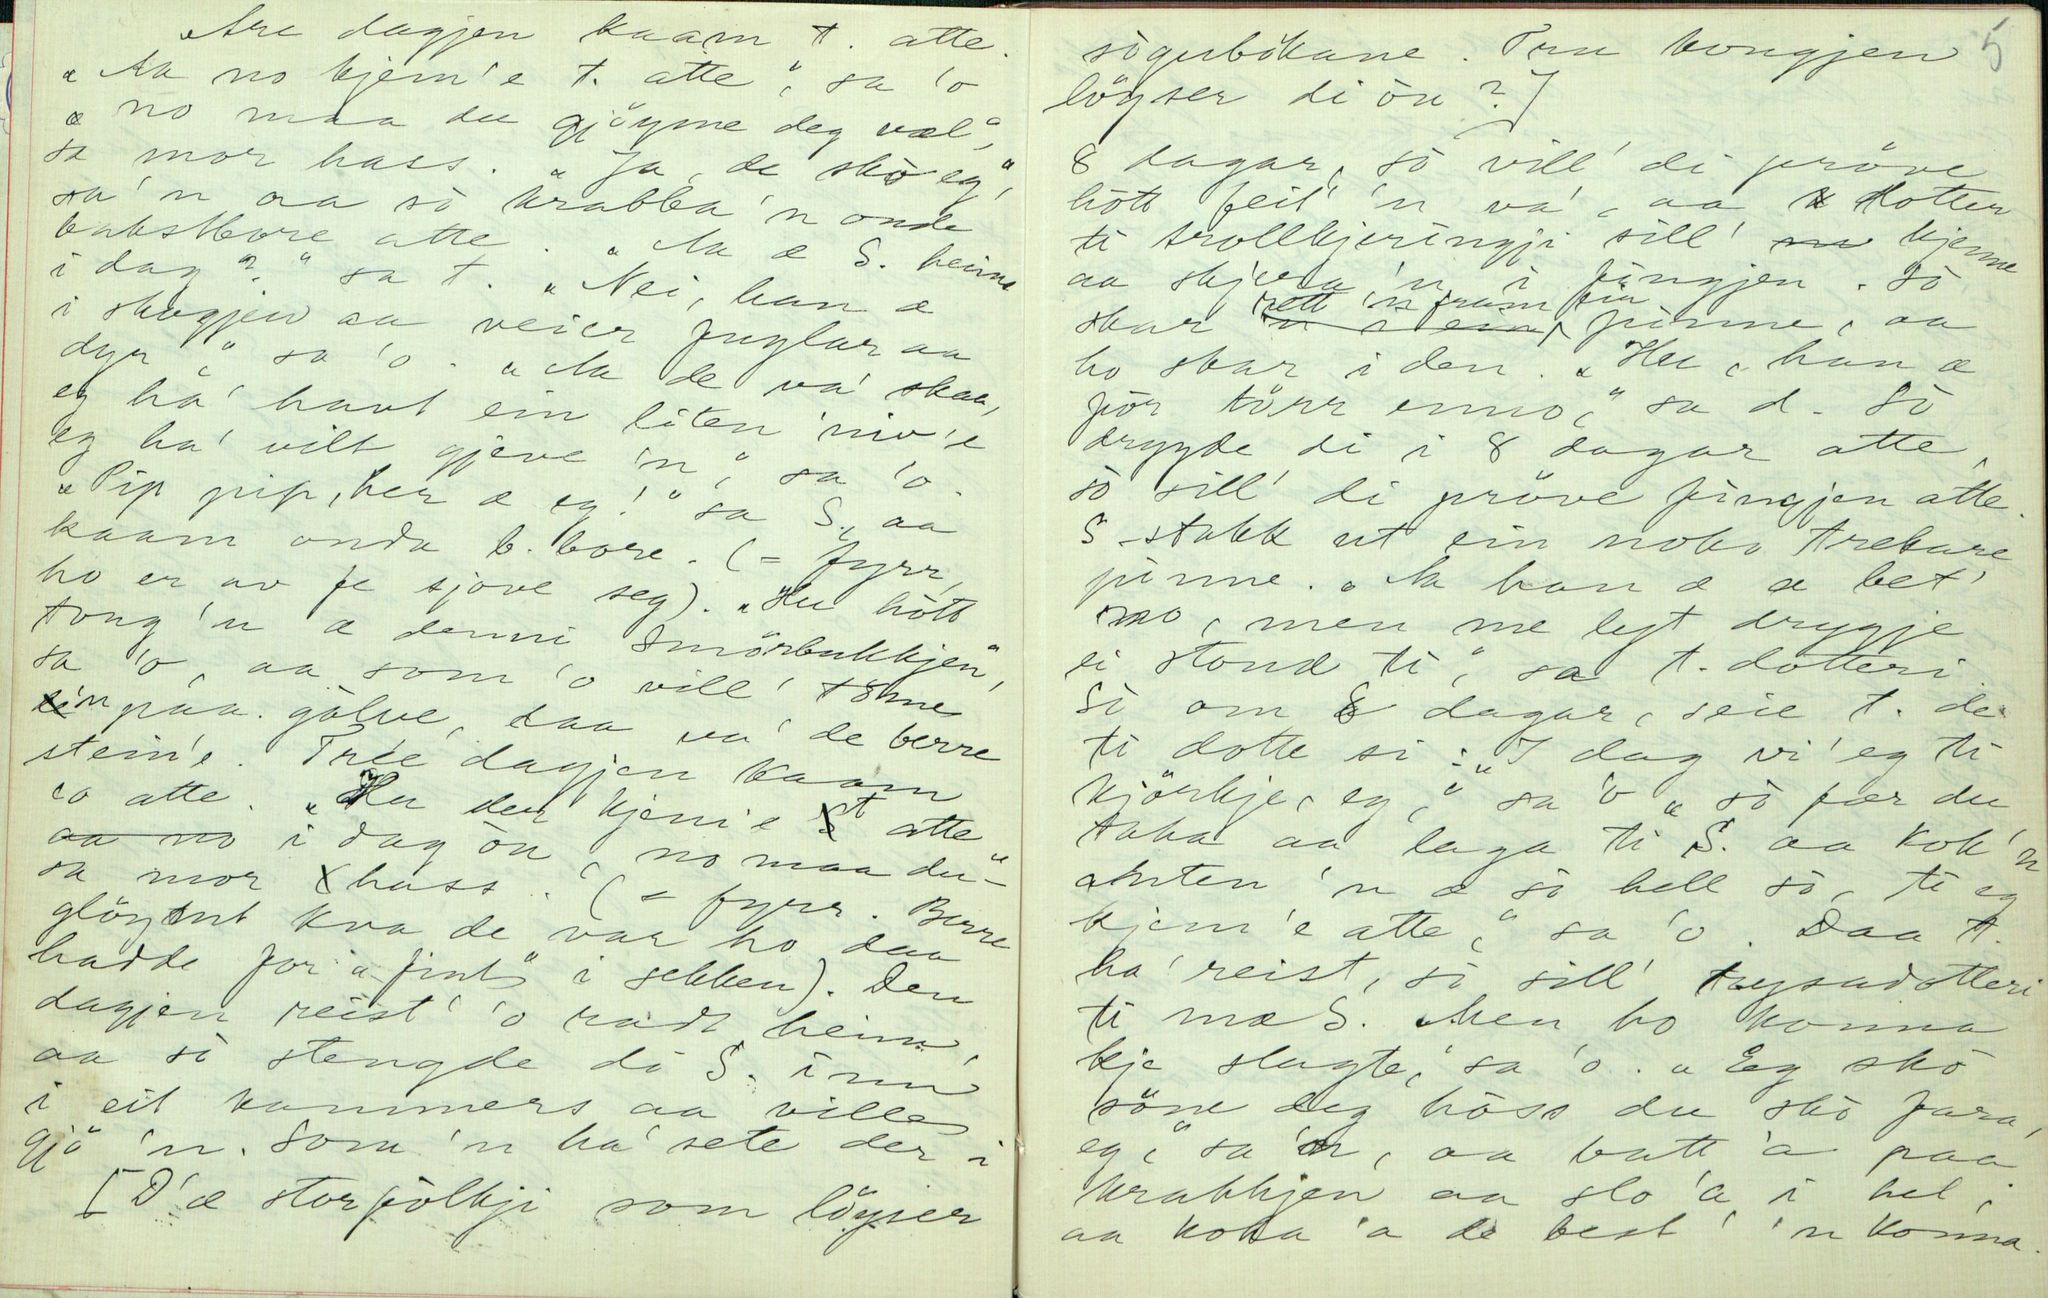 Are dagjen kaam t. atte.
„Aa no kjem'e t. atte", sa 'o
„no maa du gjöyme deg væl",
sa mor hass. „Ja, de skò eg",
sa 'n aa sò krabba 'n onde
bakstbore atte. „Aa æ S. heime
i dag?" sa t. „Nei, han æ
i skogjen aa veier fuglar aa
dyr", sa 'o. „Aa de va' skaa,
eg ha' havt ein liten 'niv'e
eg ha' vilt gjeve 'n", sa 'o.
„Pip pip, her æ eg!" sa S., aa
kaam onda b.bore. (= fyrr,
ho er av fe sjove seg). „Hu hött
tong 'n æ denni Smörbukkjen",
sa 'o, aa som 'o vill' töme
'n paa gòlve, daa va' de berre
stein'e. Trie dagjen kaam
'o atte. „Hu der kjem'e t atte
aa no i dag òu, no maa du"-
sa mor hass. (= fyrr. Berre
glöymt kva de var ho daa
hadde for „fint" i sekken). Den
dagjen reist' 'o radt heim,
aa sò stengde di S. inn
i eit kammers aa ville
gjö 'n. Som 'n ha' sete der i
[D'æ storfòlkji som löyser
sögubökane. Tru kongjen 5
löyser di òu?]
8 dagar, sò vill' di pröve
hött feit 'n va', aa dotter
ti trollkjeringji sill' kjenne
aa skjera 'n i fingjen. Sò
rett 'n fram ein
skar 'n i ein pinne, aa
ho skar i den. „Hu, han æ
för törr enno," sa d. Sò
drygde di i 8 dagar atte,
sò sill' di pröve fingjen atte.
S. stakk ut ein noko trekare
pinne. „Aa han æ æ bet'
no, men me lyt drygje
ei stond ti", sa t. dotteri.
Sò om 8 dagar, seie t. de
ti dotte si: „I dag vi' eg ti
kjörkje, eg," sa 'o „sò fær du
taka aa laga ti S. aa kok 'n
anten 'n æ sò hell sò, ti eg
kjem'e atte," sa 'o. Daa t.
ha' reist, sò sill' tugsudotteri
ti mæ S. Men ho konna
kje slagte, sa 'o. „Eg skò
söne deg höss du skò fara,
eg," sa 'n, aa batt 'a paa
krakkjen aa slo 'a i hel,
aa koka 'a de best' 'n konna.